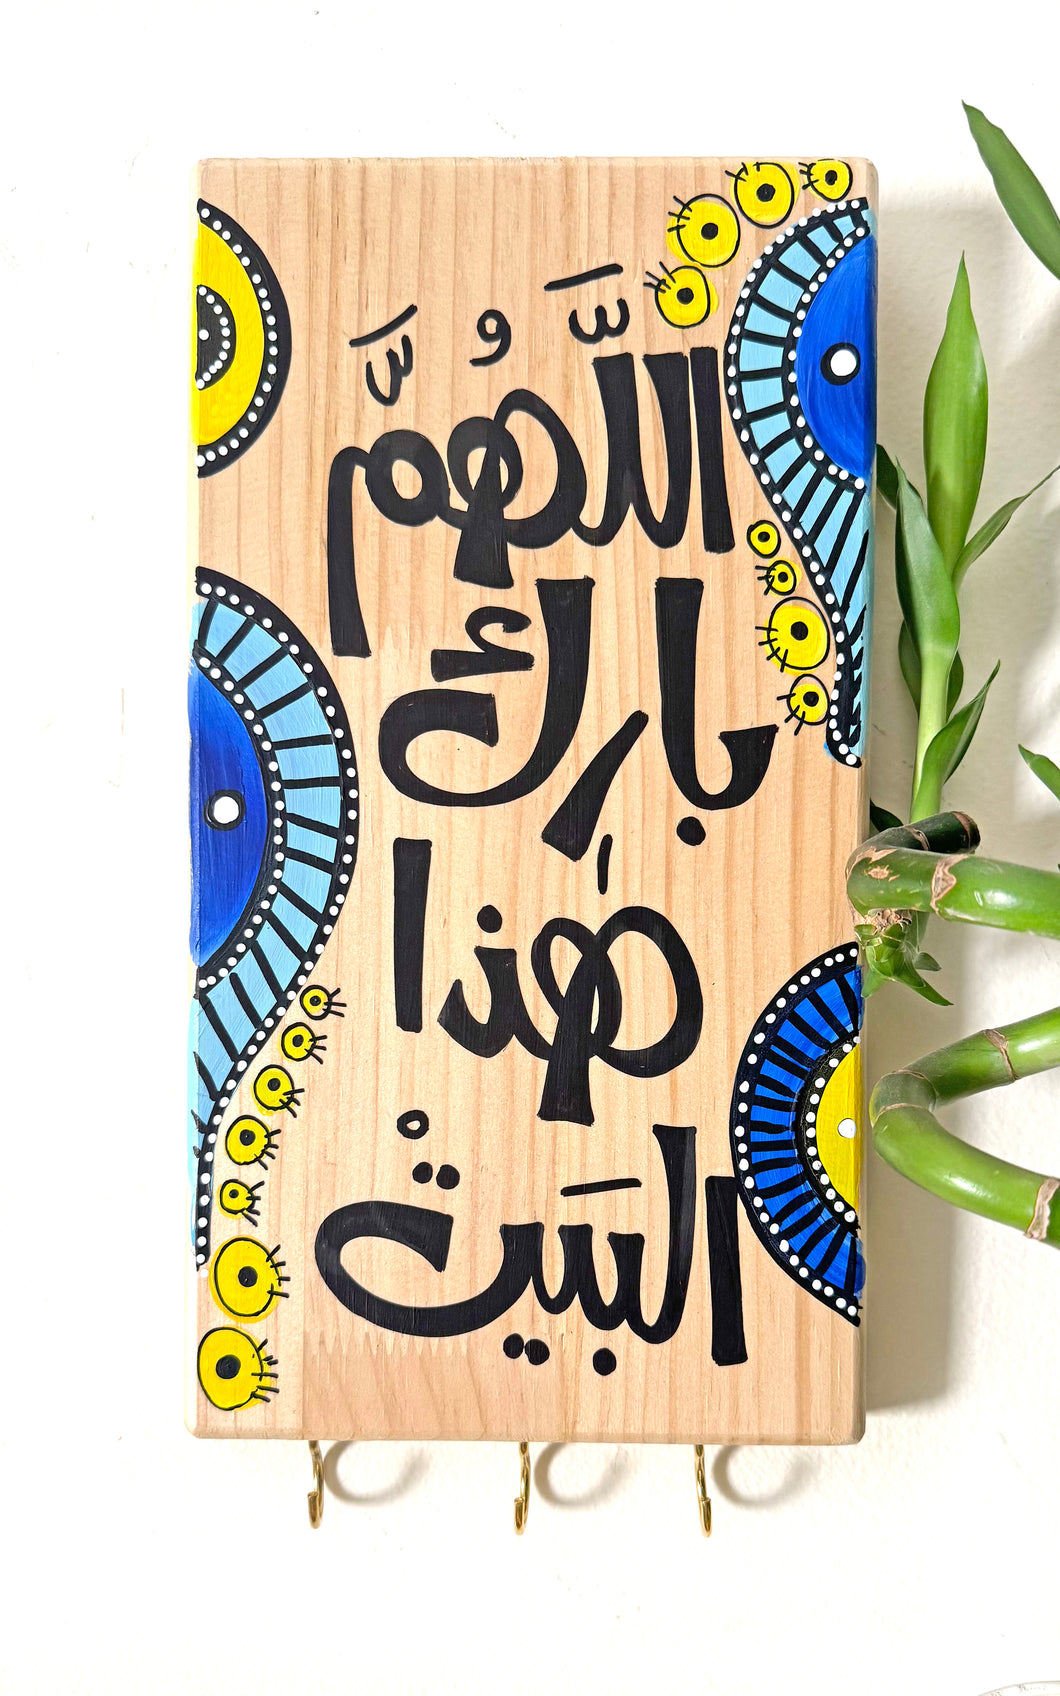 اللَّهُمَّ
بارك
هَذا
البَيتْ